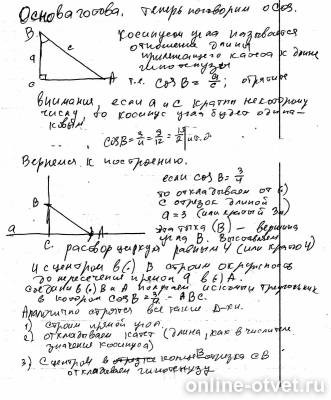 Основа готова. Теперь поговорим о cos.
B
c
a
C
A
Косинусом угла называется
отношение длины
прилежащего катета к длине
гипотенузы
т.е. cos B = a/c; обратите
внимание, если a и c кратн некоторому
числу, то косинус угла будет одина-
ковым.
cosB = 3/4 = 9/12 = и т.д.
Вернемся к построению.
если cosB = 3/4
то откладываем от (.)
C отрезок длиной
a = 3 (или кратный 3м)
эта точка (B) – вершина
угла B.
B
a
C
A
раствор циркуля равным 4 (или кратно 4)
И с центром в (.) B строим окружность
до пересечения с прямой a в (.) A.
Соединив (.) B и A получаем искомый треугольник
в котором cosB = 3/4 - ABC.
Аналогично строятся все такие Δ-ки.
1) строим прямой угол.
2) откладываем катет (длина, как в числителе
значения косинуса)
3) С центром в конце отрезка CB
откладываем гипотенузу
online-otvet.ru